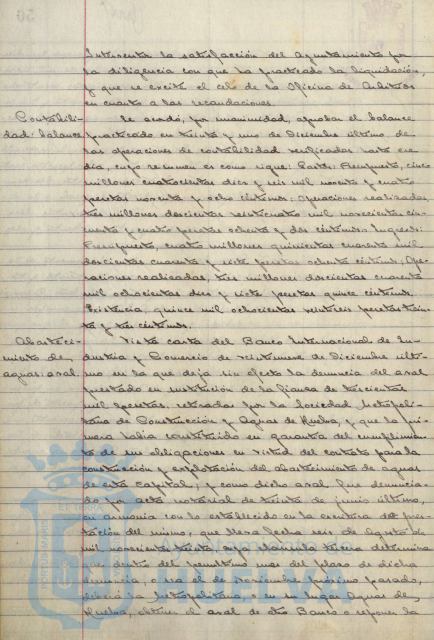 Interventor la satisfacción del Ayuntamiento por
la diligencia con que ha practicado la liquidación,
y que se excite el celo de la Oficina de Arbitrios
en cuanto a las recaudaciones.
Contabili-
dad: balance
Se acordó, por unanimidad, aprobar el balance
practicado en treinta y uno de Diciembre último de
las operaciones de contabilidad verificadas hasta ese
día, cuyo resumen es como sigue: Gastos: Presupuesto, cinco
millones cuatrocientas diez y seis mil noventa y cuatro
pesetas noventa y ocho céntimos; Operaciones realizadas,
tres millones doscientas veinticuatro mil novecientas cin-
cuenta y cuatro pesetas ochenta y dos céntimos. Ingresos:
Presupuesto, cuatro millones quinientas cuarenta mil
doscientas cuarenta y siete pesetas ochenta céntimos; Ope-
raciones realizadas, tres millones doscientas cuarenta
mil ochocientas diez y siete pesetas quince céntimos.
Existencia, quince mil ochocientas pesetas trein-
ta y tres céntimos.
Abasteci-
miento de
aguas: aval
Vista carta del Banco Internacional de In-
dustria y Comercio de de Diciembre últi-
mo en la que deja sin efecto la denuncia del aval
prestado en sustitución de la fianza de trescientas
mil pesetas, retiradas por la Sociedad Metropoli-
tana de Construcción y Aguas de Huelva, y que la pri-
mera había constituido en garantía del cumplimien-
to de sus obligaciones en virtud del contrato para la
construcción y explotación del abastecimiento de aguas
de esta capital; y como dicho aval fue denuncia-
do por acta notarial de treinta de junio último,
en armonía con lo establecido en la escritura de pres-
tación del mismo, que lleva fecha seis de Agosto de
mil novecientos treinta, cuya cláusula tercera determina
que dentro del penúltimo mes del plazo de dicha
denuncia, o sea el de noviembre próximo pasado,
debería la Metropolitana, o en su lugar Aguas de
Huelva, obtener el aval de otro Banco o reponer la